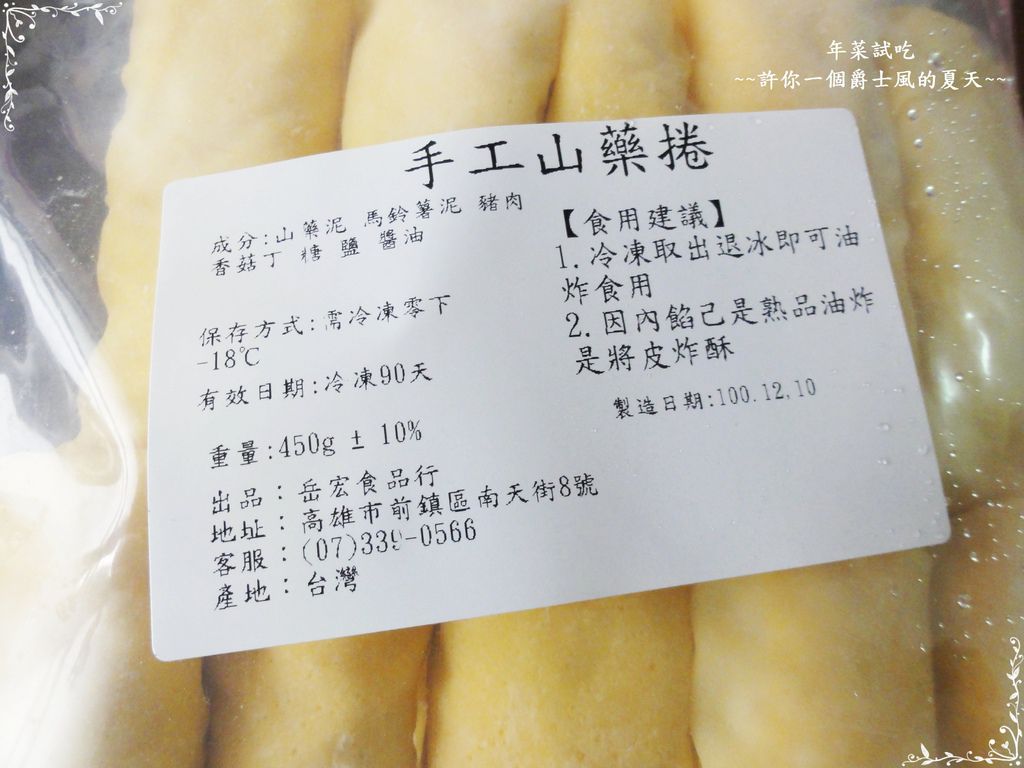 年菜試吃
~~許你一個爵士風的夏天~~
手工山藥捲
成分:山藥泥 馬鈴薯泥 豬肉
香菇丁 糖 鹽 醬油
保存方式:需冷凍零下
-18℃
有效日期:冷凍90天
重量:450g ± 10%
出品：岳宏食品行
地址：高雄市前鎮區南天街8號
客服：(07)339-0566
產地：台灣
【食用建議】
1.冷凍取出退冰即可油
炸食用
2.因內餡己是熟品油炸
是將皮炸酥
製造日期:100.12.10